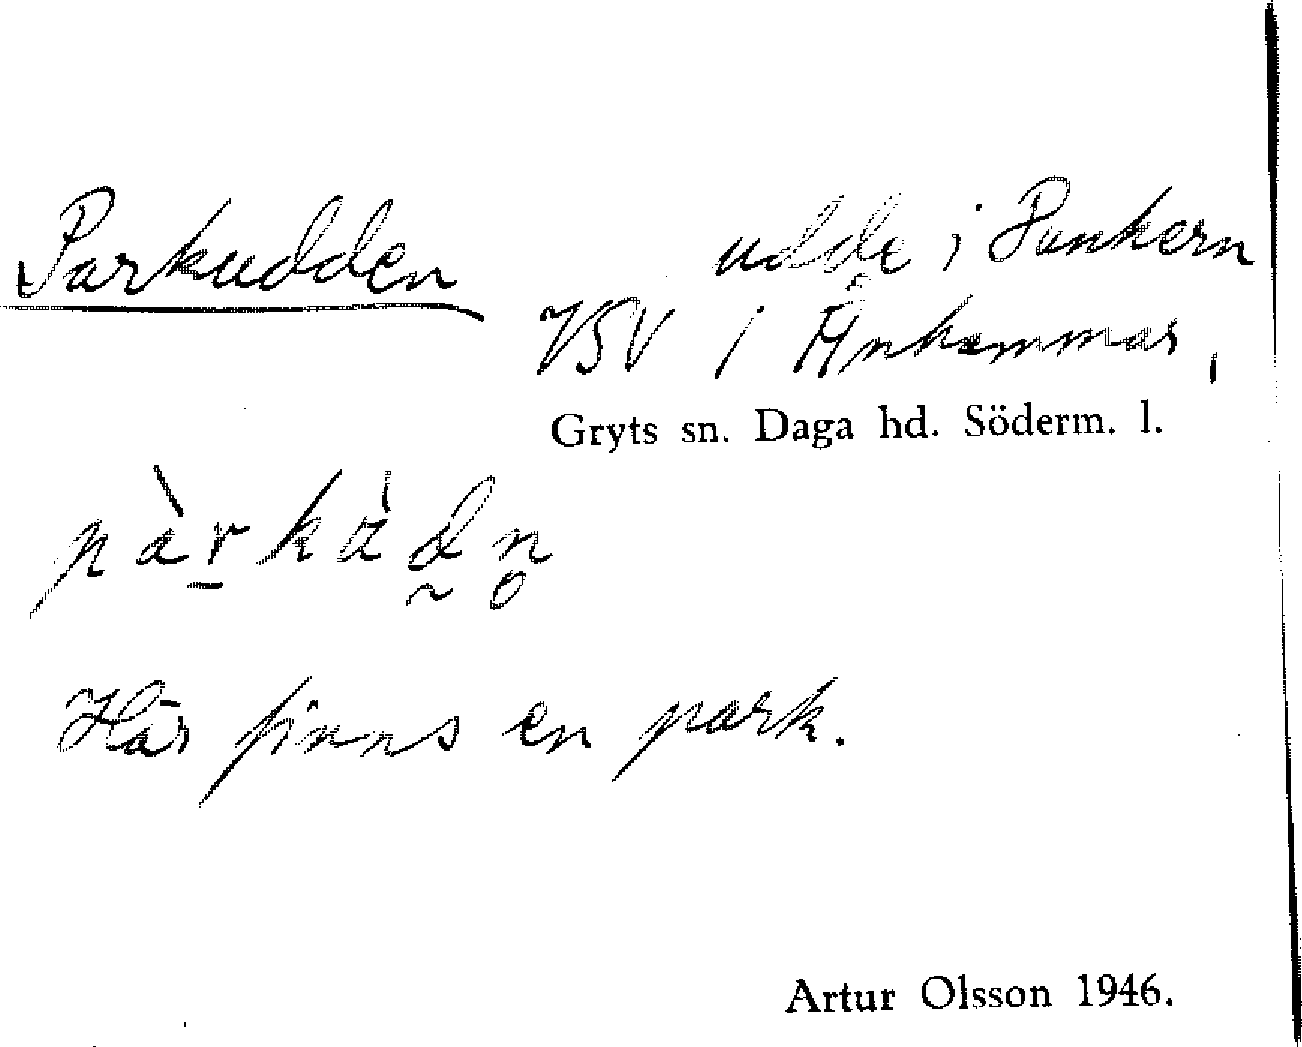 Parkudden udde i Dunkern
VSV i Änhammar,
Gryts sn. Daga hd. Söderm. l.
Här finns en park.
Artur Olsson 1946.